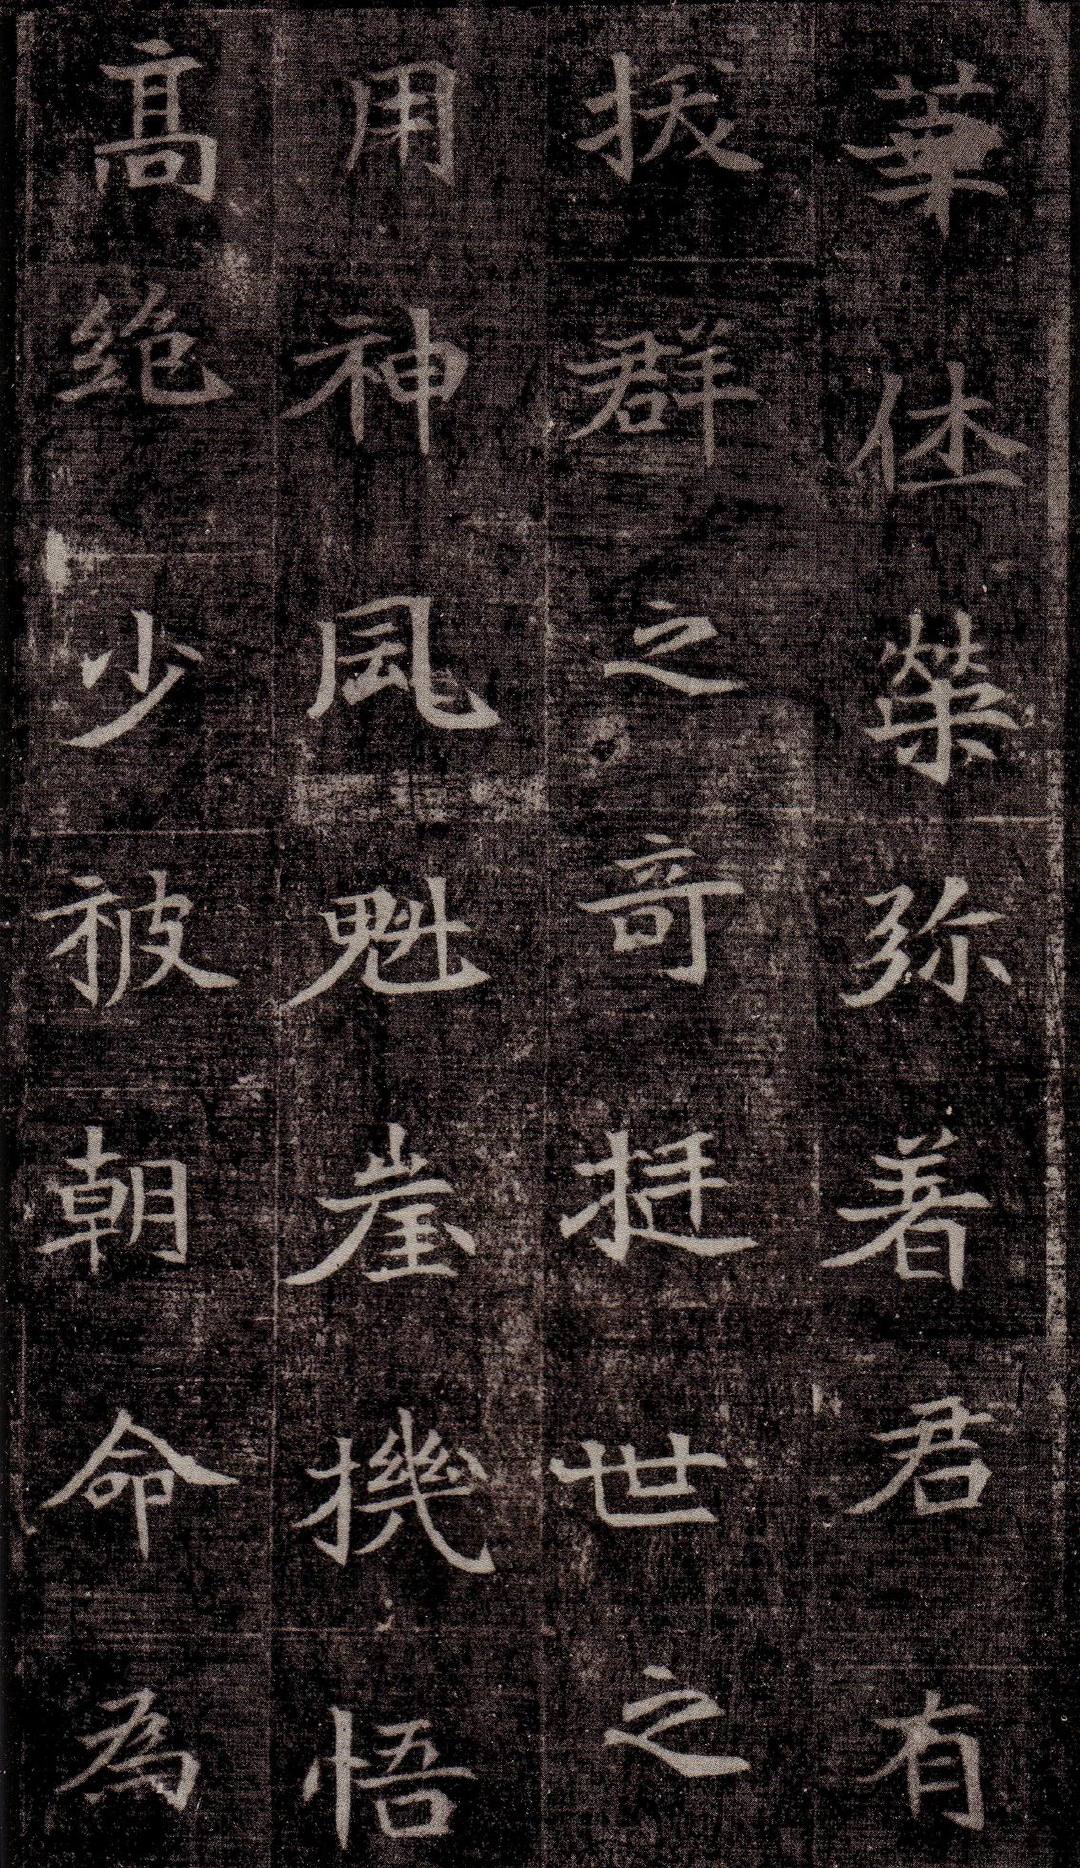 華休榮弥著君有
拔群之奇挺世之
用神風魁崖機悟
高絶少被朝命為